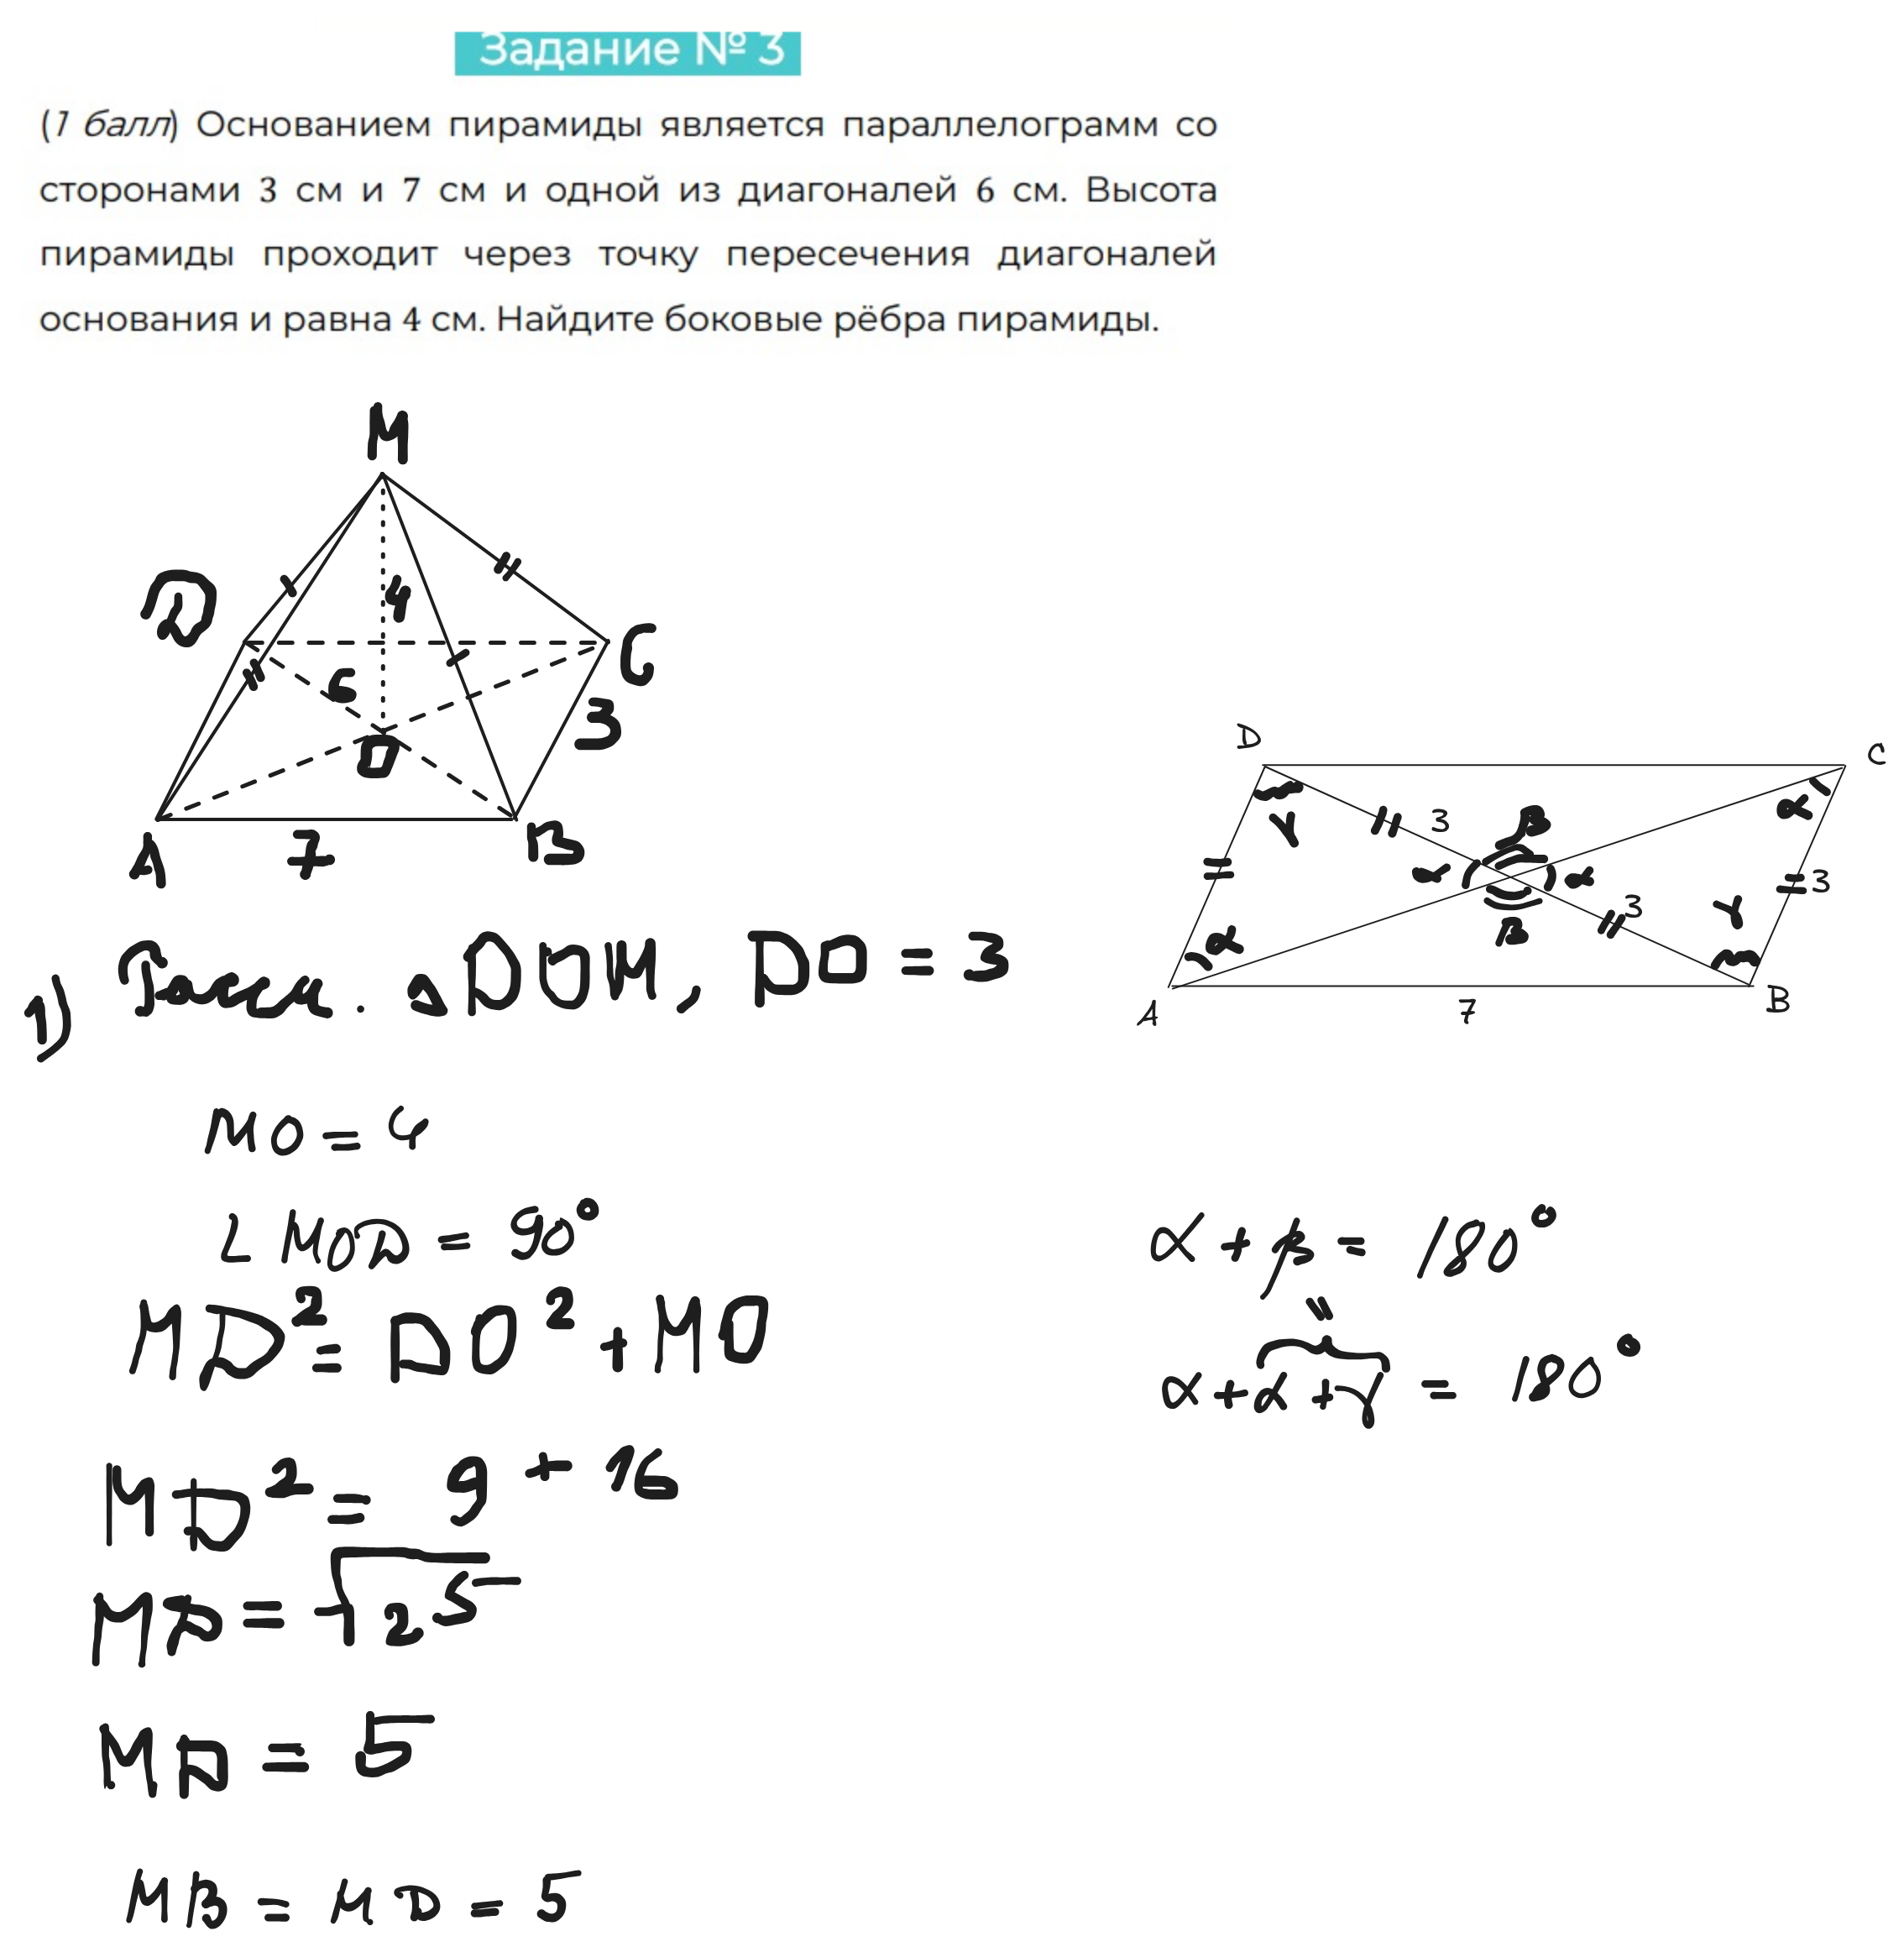 Задание № 3
(1 балл) Основанием пирамиды является параллелограмм со
сторонами 3 см и 7 см и одной из диагоналей 6 см. Высота
пирамиды проходит через точку пересечения диагоналей
основания и равна 4 см. Найдите боковые рёбра пирамиды.
M
D
4
6
C
3
O
A
7
B
D
C
γ
3
β
α
α
α
3
3
γ
α
β
A
7
B
1) Рассм. △DOM, DO = 3
MO = 4
∠MOD = 90°
α + β = 180°
MD² = DO² + MO
"
α + α + γ = 180°
MD² = 9 + 16
MD = √25
MD = 5
MB = MD = 5